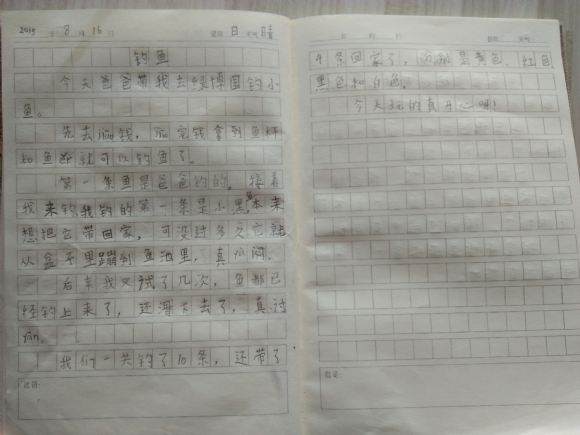 2019年8月16日 星期日 天气晴
钓鱼
今天爸爸带我去绿博园钓小
鱼。
先去缴钱，缴完钱拿到鱼杆
和鱼就可以钓鱼了。
第一条鱼是爸爸钓的。接着
我来钓我钓的第一条是小黑鱼本来
想把它带回家，可没过多久它就
从盆子里蹦到鱼池里，真
后来我又试了几次，鱼都已
经钓上来了，还滑下去了，真讨
厌。
我们一共钓了10条，还带了
条回家了，是黄色、红色
黑色和白色。
今天玩的真开心呀！
批语：
批语：